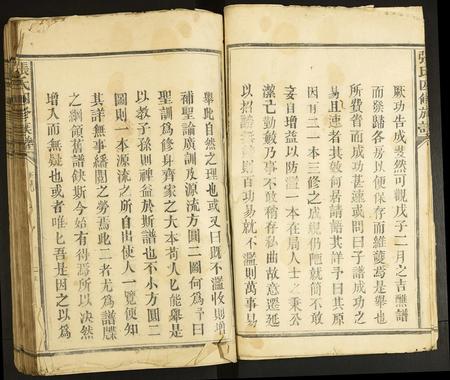 張氏四修族譜
厥功告成斐然可觀戊子二月之吉醮譜
而發繕各房以便保存而維護焉是舉也
所費省而成功甚速或問曰子譜成功之
且速者其效何居請語其詳予曰其原
因有二一本三修之成規仍陋就簡不敢
妄自增益以防濫一本在局人士之秉公
潔亡勤敏乃事不敢稍存私曲故意遷延
以招謗 則百功易就不濫則萬事易
舉此自然之理也或又曰旣不濫收則增
補聖論廣訓及源流方圓二圖何為予曰
聖訓為修身齊家之大本苟人匕能舉是
以教子孫則裨益於斯譜也不小方圓二
圖則一本源流之所自出使人一覽便知
其詳無事繙閱之勞焉此二者尤為譜牒
之綱領舊譜缺斯今始有得焉所以决然
增入而無疑也或者唯匕吾是因之以為
張氏四修族譜